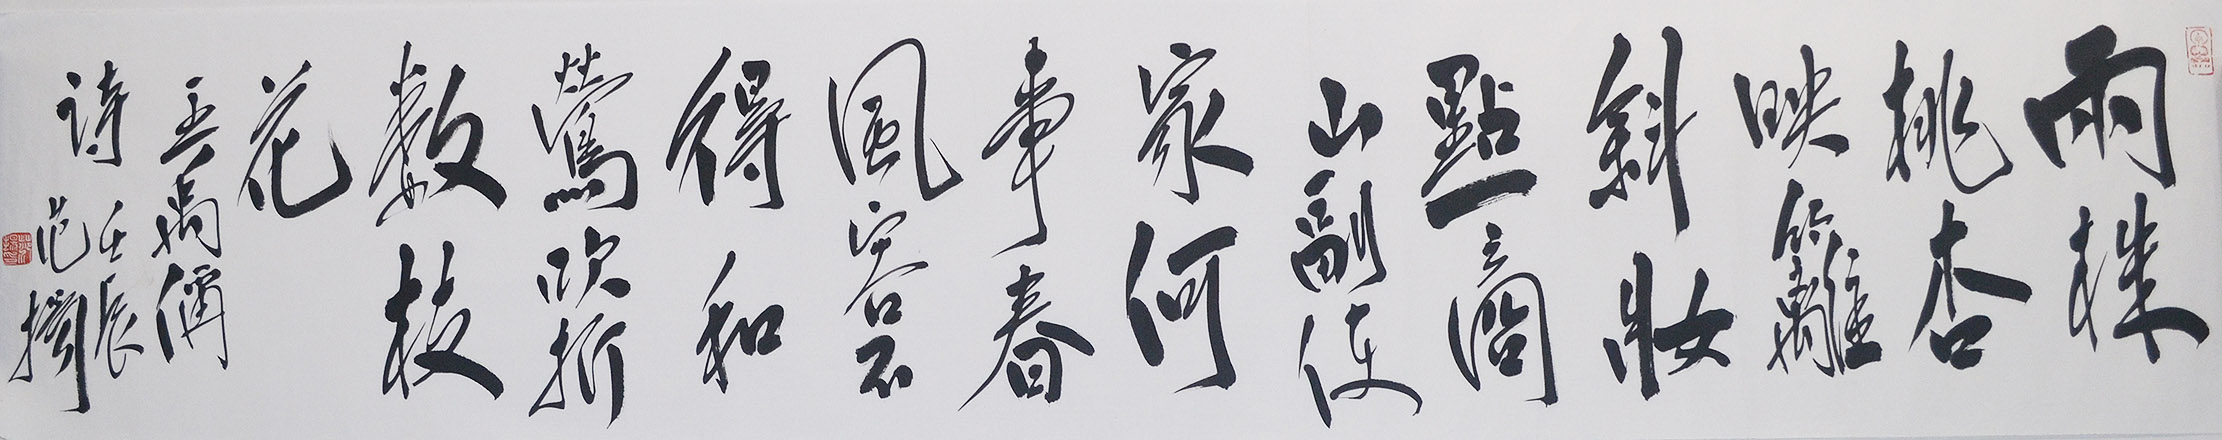 兩株
桃杏
映籬
斜妝
點商
山副使
家何
事春
風容不
得和
鶯吹折
數枝
花
王禹偁
詩 壬辰
范